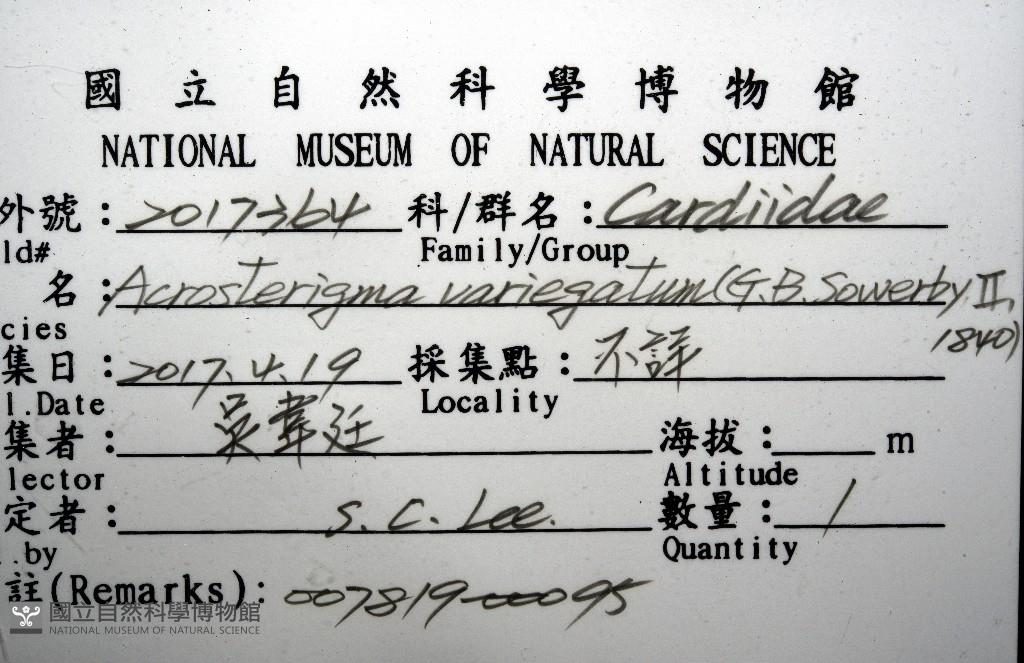 國立自然科學博物館
NATIONAL MUSEUM OF NATURAL SCIENCE
外號：2017364 科/群名：Cardiidae
ld# Family/Group
名：Acrosterigma variegatum (G.B. Sowerby II,
cies 1840)
集日：2017.4.19 採集點：不詳
l.Date Locality
集者：吳韋廷 海拔： m
lector Altitude
定者：S. C. Lee. 數量：1
.by Quantity
註(Remarks)：007819-00095
國立自然科學博物館
NATIONAL MUSEUM OF NATURAL SCIENCE